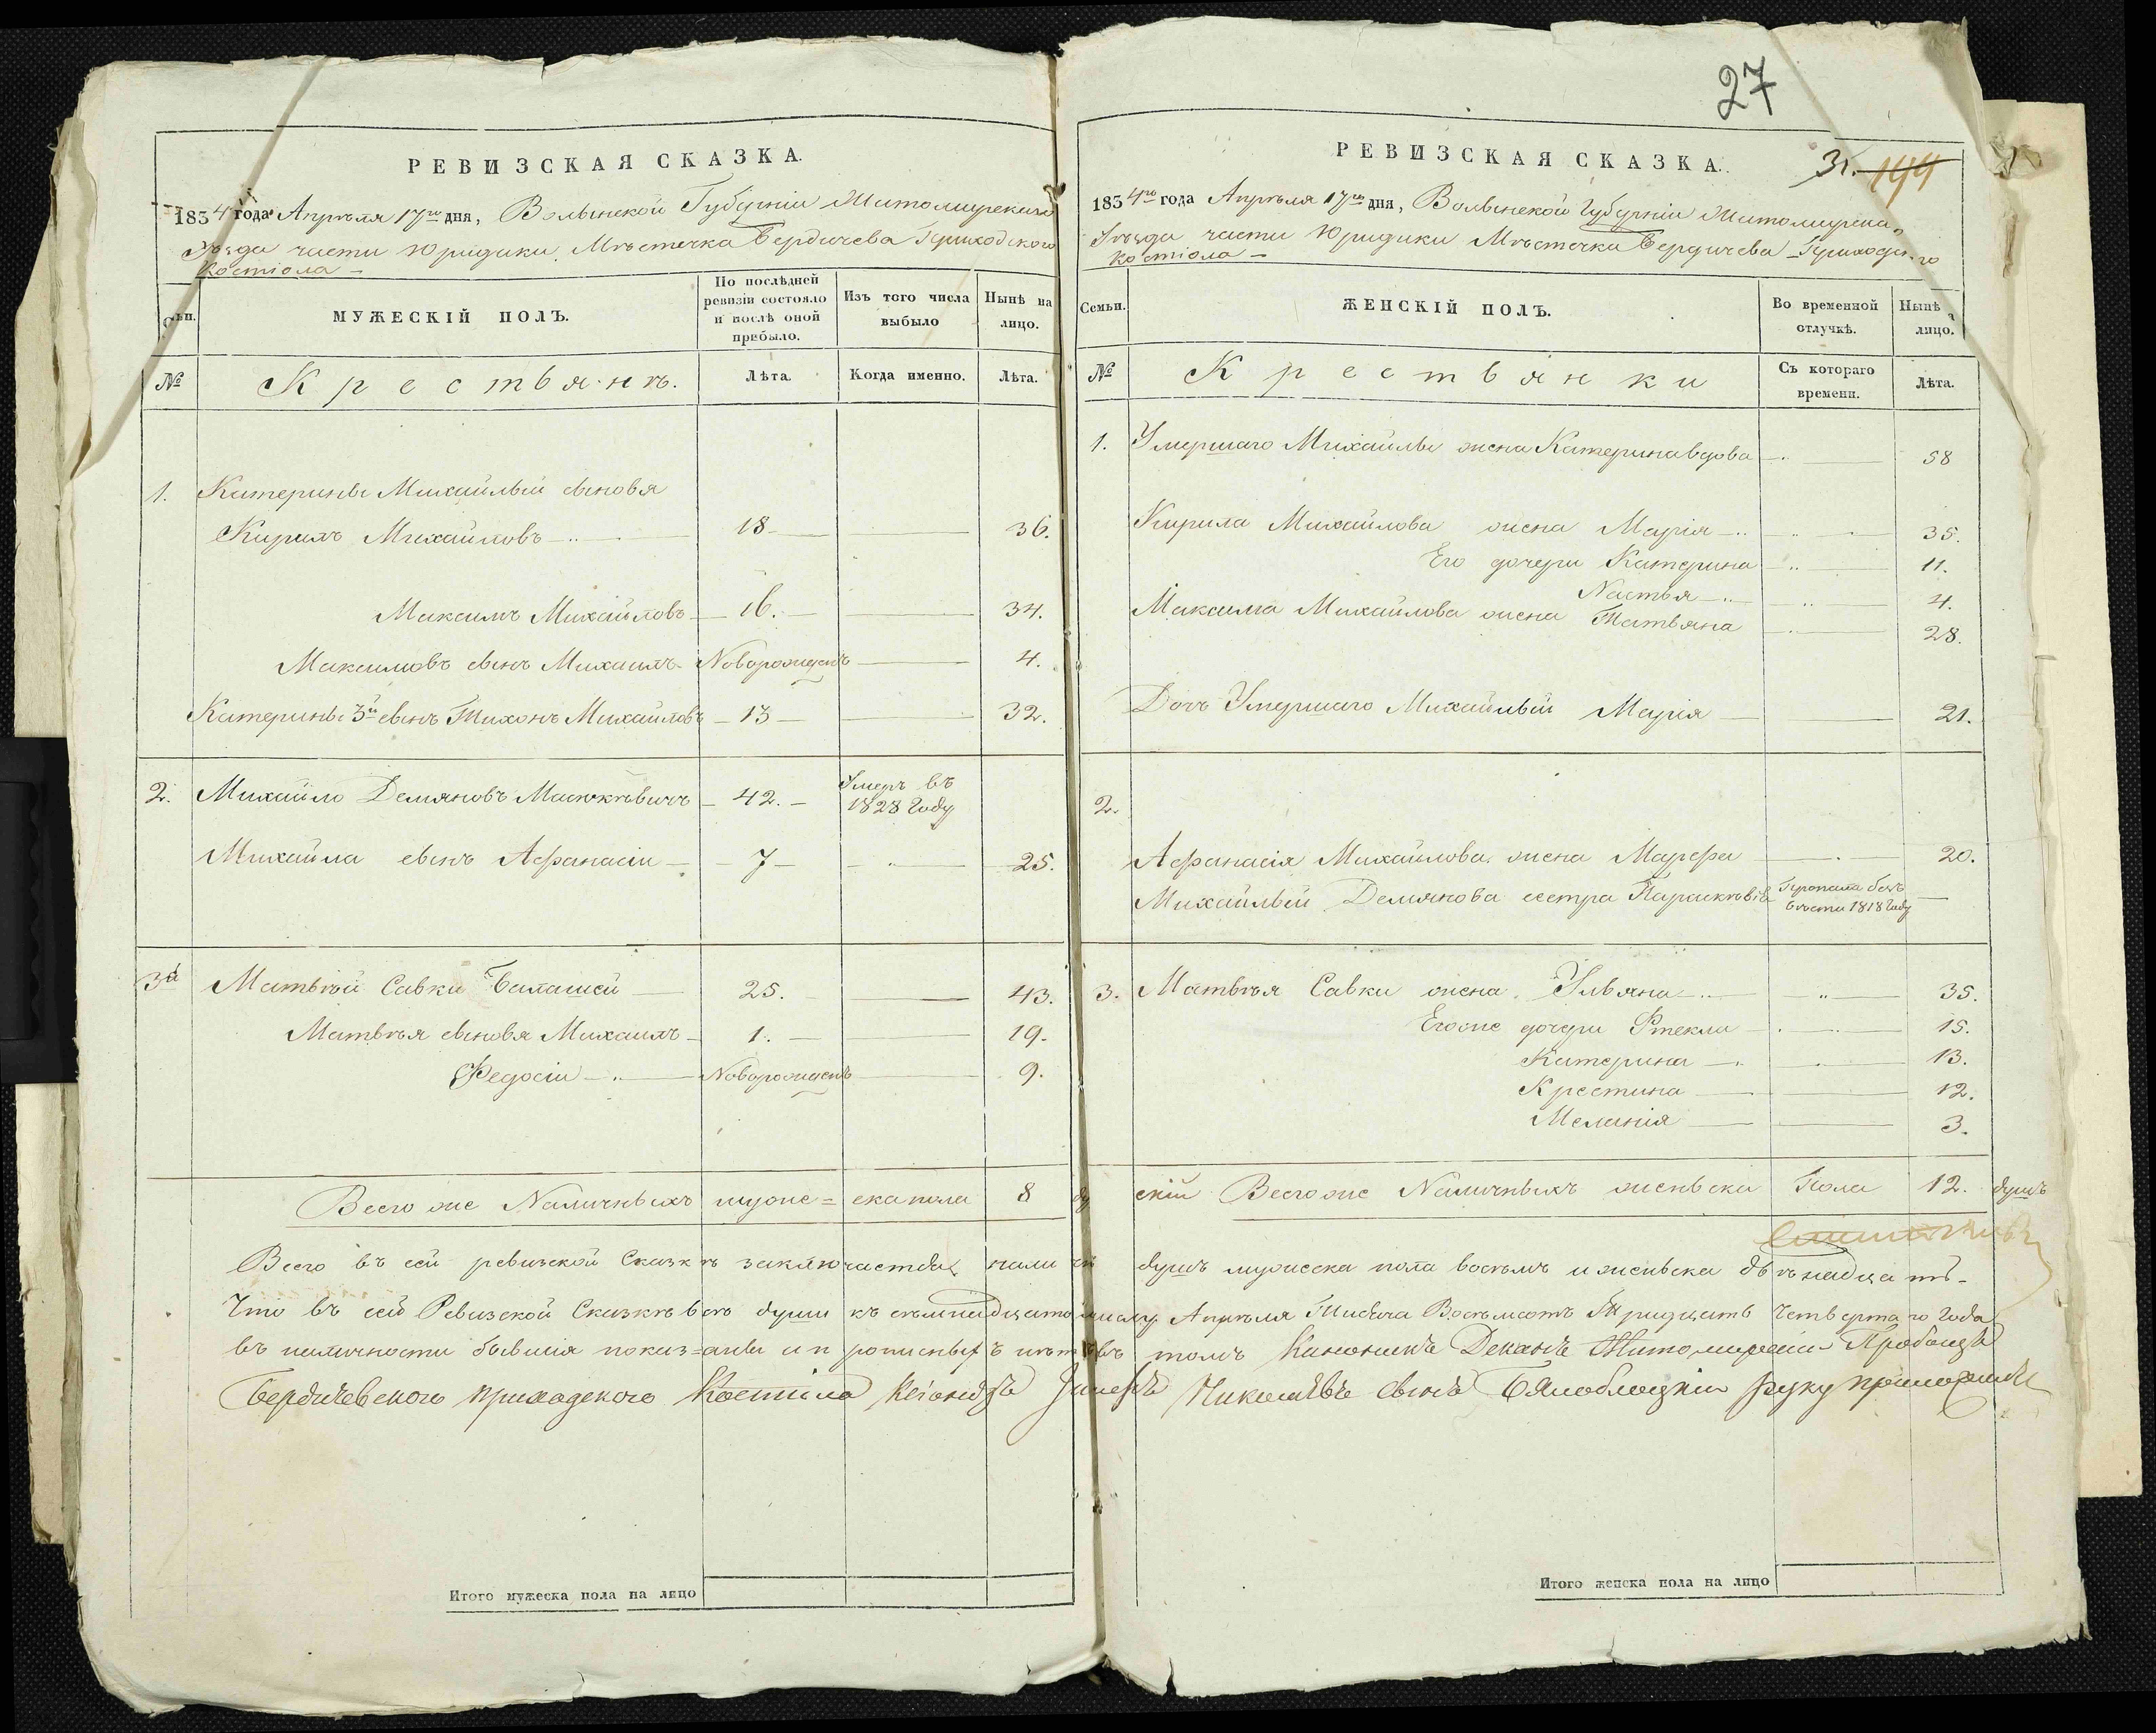 27
РЕВИЗСКАЯ СКАЗКА.
1834 года Апрѣля 17го дня, Волынской Губерніи Житомирскаго
Уѣзда части Юридики Мѣстечка Бердичева Приходского
Костіола —
МУЖЕСКІЙ ПОЛЪ.
По послѣдней ревизіи состояло и послѣ оной прибыло.
Изъ того числа выбыло
Нынѣ на лицо.
№
Крестьянъ.
Лѣта.
Когда именно.
Лѣта.
1. Катерины Михайлый сыновя
Кирилъ Михайловъ 18 36.
Максимъ Михайловъ 16. 34.
Максимовъ сынъ Михаилъ Новорожденъ 4.
Катерины 3й сынъ Тихонъ Михайловъ 13 32.
2. Михайло Демяновъ 42. Умеръ въ 1828 Году
Михайла сынъ Афанасіи 7 25.
3й Матвѣй Савки 25. 43.
Матвѣя сыновя Михаилъ 1. 19.
Федосіи Новорожденъ 9.
Всего же Наличныхъ мужеска пола 8
Итого мужеска пола на лицо
РЕВИЗСКАЯ СКАЗКА.
31. 144
1834го года Апрѣля 17го дня, Волынской Губерніи Житомирска
Уѣзда части Юридики Мѣстечка Бердичева Приходского
Костіола —
Семьи.
ЖЕНСКІЙ ПОЛЪ.
Во временной отлучкѣ.
Нынѣ на лицо.
№
Крестьянки
Съ котораго времени.
Лѣта.
1. Умершаго Михайлы жена Катерина вдова 58
Кирила Михайлова жена Марія 35.
Его дочери Катерина 11.
Настья 4.
Максима Михайлова жена Татьяна 28.
Доч Умершаго Михайлый Марія 21.
2.
Афанасія Михайлова жена Марфа 20.
Михайлый Демянова сестра Параскѣвія Пропала безъ вѣсти 1818 Году
3. Матвѣя Савки жена Ульяна 35.
Егоже дочери Фтекли 15.
Катерина 13.
Крестина 12.
Меланія 3.
Всего же Наличныхъ женьска Пола 12. душъ
Итого женска пола на лицо
Всего въ сей ревизской Сказкѣ душъ мужеска пола восѣмъ и женьска двѣнадцать
Что въ сей Ревизской Сказкѣ всѣ души къ сѣмнадцатому Апрѣля Тисяча Восѣмсотъ Тридцать Четвертаго Года
въ наличности бывшія показаны и прописныхъ нѣтъ въ томъ Каноникъ Деканъ Житомирскій Пробощъ
Бердичевского приходского Костіола Николаевъ сынъ руку приложилъ